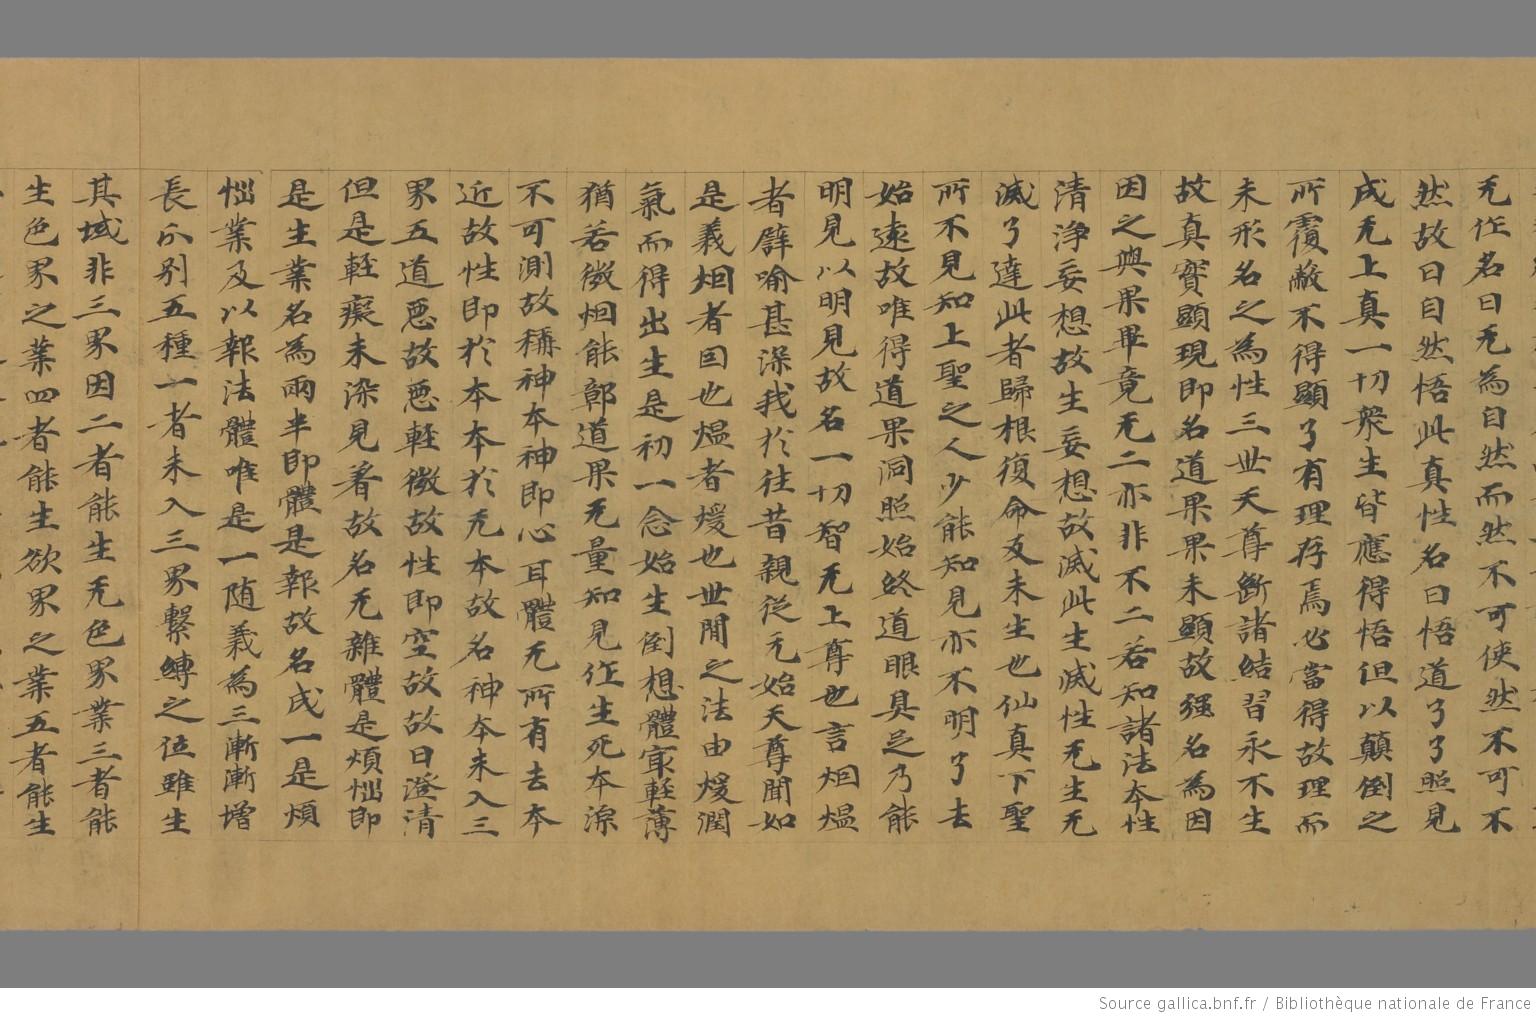 无作名曰无為自然而然不可使然不可不
然故曰自然悟此真性名曰悟道了了照見
成无上真一切衆生皆應得悟但以顛倒之
所覆蔽不得顯了有理存焉必當得故理而
未形名之為性三世天尊斷諸結習永不生
故真實顯現即名道果果未顯故强名為因
因之與果畢竟无二亦非不二若知諸法本性
清淨妄想故生妄想故滅此生滅性无生无
滅了達此者歸根復命反未生也仙真下聖
所不見知上聖之人少能知見亦不明了去
始遠故唯得道果洞照始終道眼具足乃能
明見以明見故名一切智无上尊也言烟熅
者譬喻甚深我於往昔親從无始天尊聞如
是義烟者因也熅者煖也世間之法由煖潤
氣而得出生是初一念始生倒想體寂輕薄
猶若微烟能鄣道果无量知見作生死本源
不可測故稱神本神即心耳體无所有去本
近故性即於本本於无本故名神本未入三
界五道惡故惡輕微故性即空故故曰澄清
但是輕癡未染見著故名无雜體是煩惱即
是生業名為兩半即體是報故名成一是煩
惱業及以報法體唯是一隨義為三漸漸增
長分别五種一者未入三界繫縛之位雖生
其域非三界因二者能生无色界業三者能
生色界之業四者能生欲界之業五者能生
Source gallica.bnf.fr / Bibliothèque nationale de France